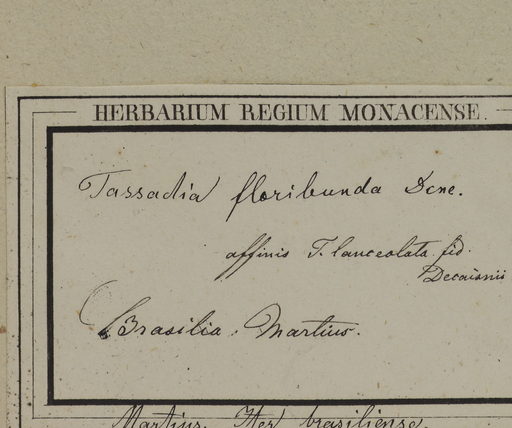 HERBARIUM REGIUM MONACENSE.
Tassadia floribunda Dcne.
affinis T. lanceolata fid.
Decaisnii
Brasilia. Martius.
Martius. Iter brasiliense.